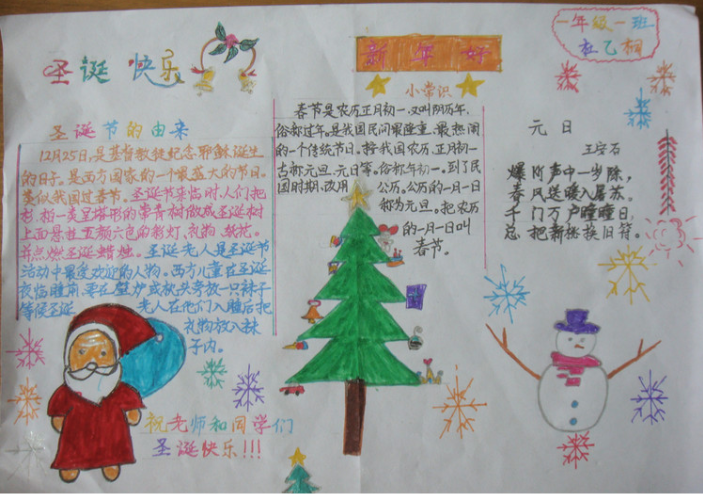 圣诞快乐
新年好
一年级一班
杜乙桐
圣诞节的由来
12月25日,是基督教徒纪念耶稣诞生
的日子。是西方国家的一个最盛大的节日。
类似我国过春节。圣诞节来临时,人们把
杉、松一类呈塔形的常青树做成圣诞树
上面悬挂五颜六色的彩灯、礼物、纸花。
并点燃圣诞蜡烛。圣诞老人是圣诞节
活动中最受欢迎的人物。西方儿童在圣诞
夜临睡前,要在壁炉或枕头旁放一只袜子
等候圣诞老人在他们入睡后把
礼物放入袜
子内。
祝老师和同学们
圣诞快乐!!!
小常识
春节是农历正月初一,又叫阴历年,
俗称过年。是我国民间最隆重、最热闹
的一个传统节日。按我国农历,正月初一
古称元旦、元日等。俗称年初一。到了民
国时期,改用公历。公历的一月一日
称为元旦。把农历
的一月一日叫
春节。
元日
王安石
爆竹声中一岁除,
春风送暖入屠苏。
千门万户曈曈日,
总把新桃换旧符。